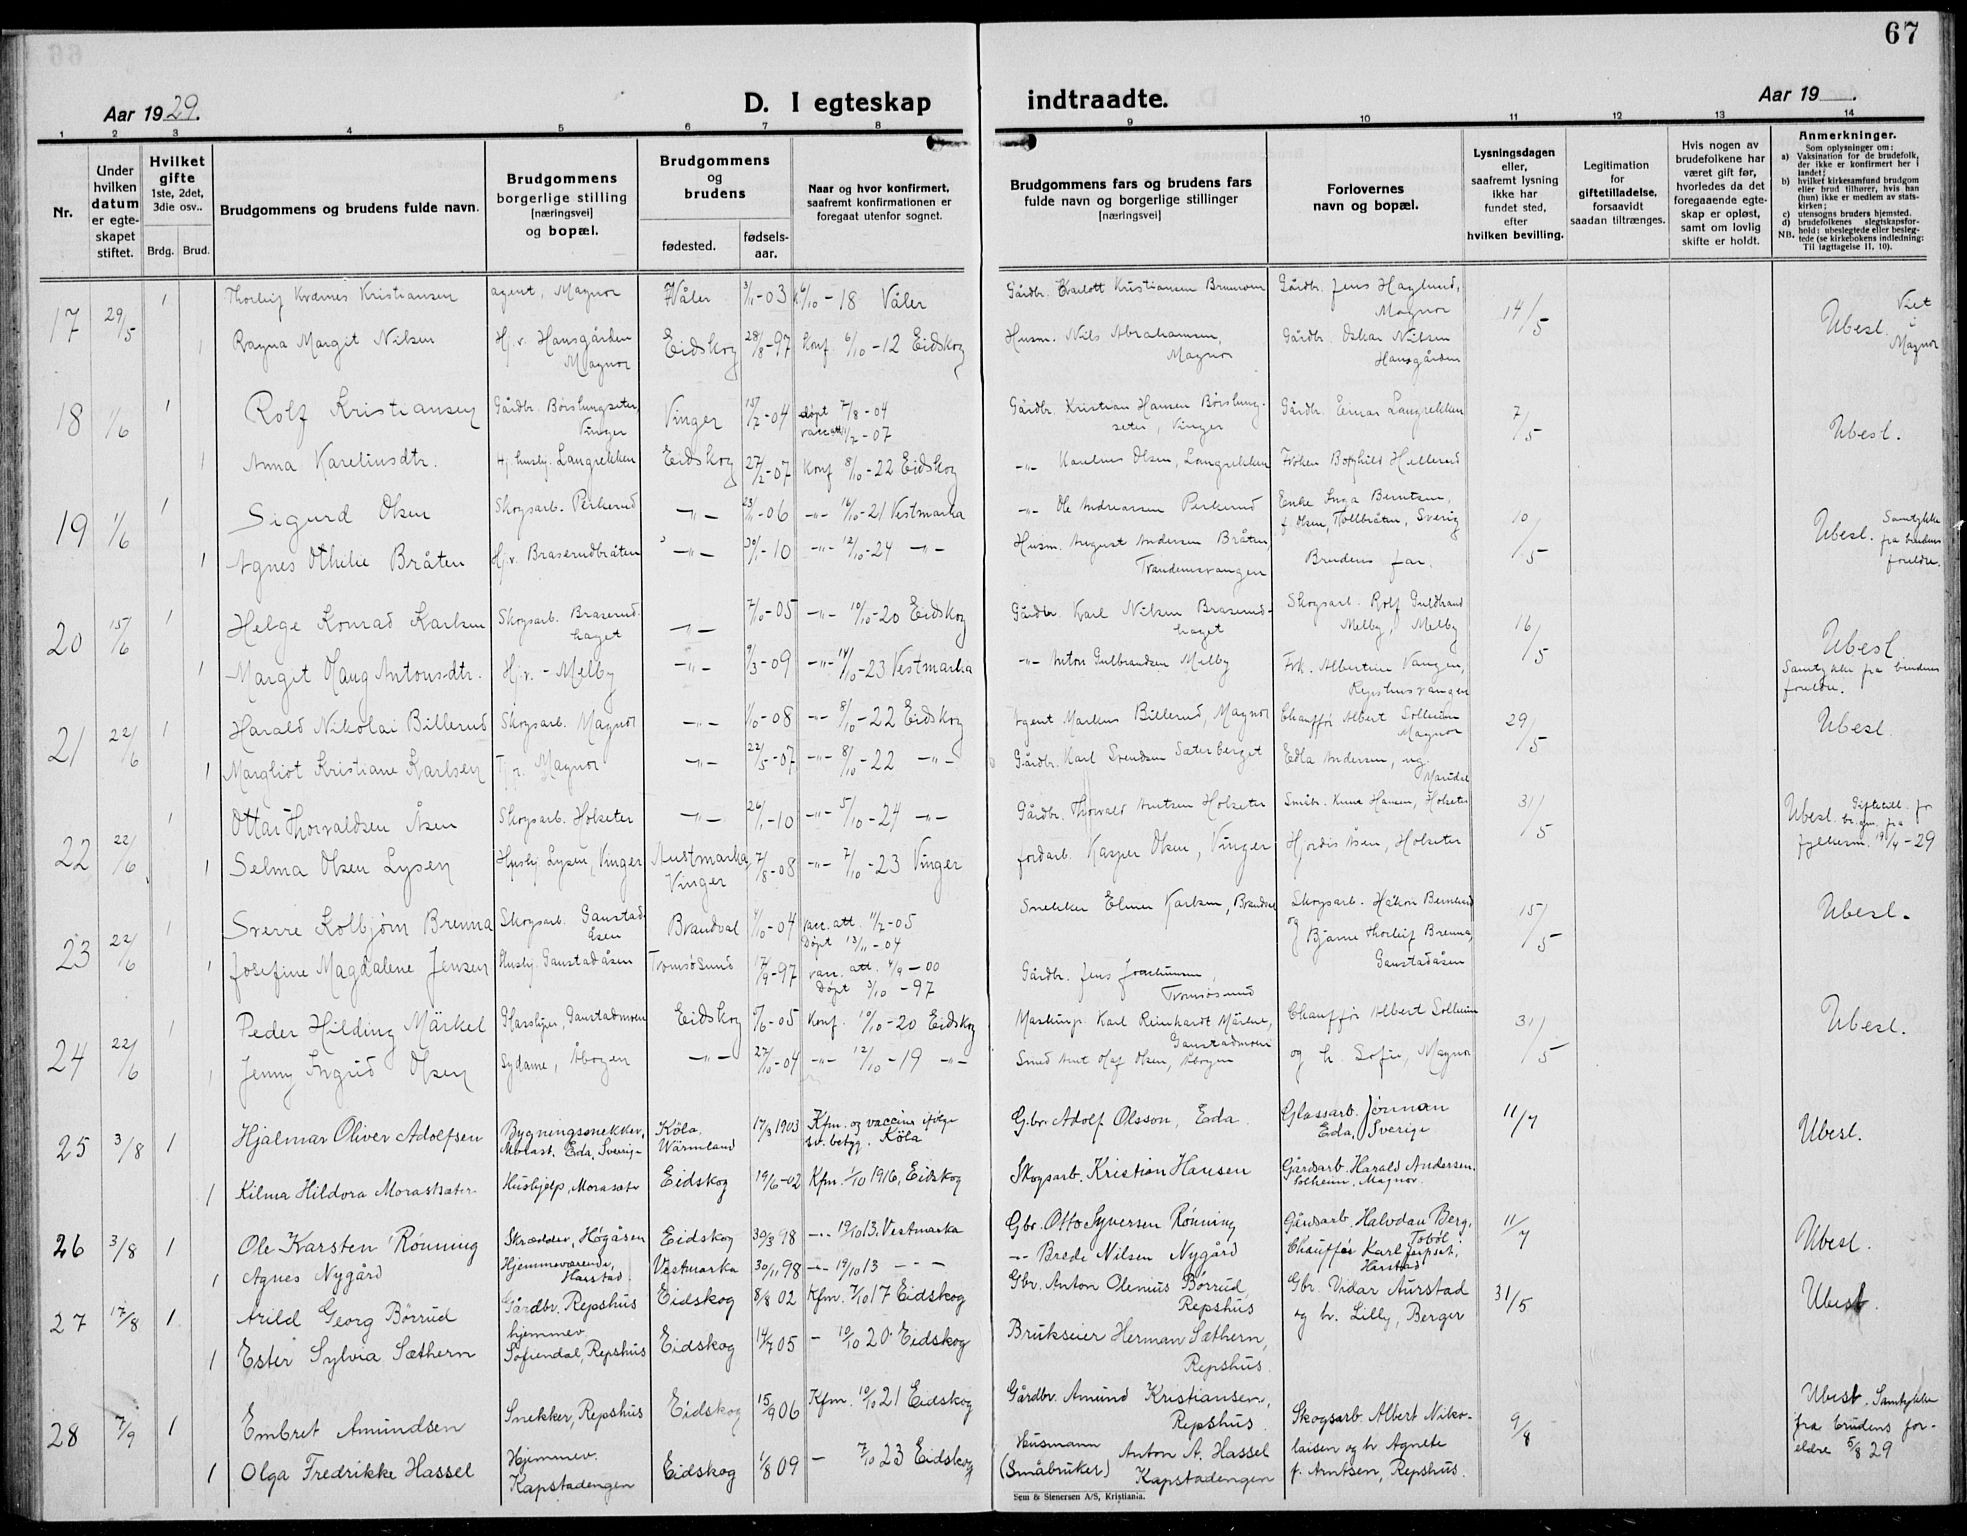 67
Aar 1929.
D. I egteskap indtraadte.
Aar 19
1 2 3 4 5 6 7 8 9 10 11 12 13 14
Nr.
Under hvilken datum er egteskapet stiftet.
Hvilket gifte 1ste, 2det, 3die osv..
Brdg. Brud.
Brudgommens og brudens fulde navn.
Brudgommens borgerlige stilling [næringsvei] og bopæl.
Brudgommens og brudens
fødested. fødselsaar.
Naar og hvor konfirmert, saafremt konfirmationen er foregaat utenfor sognet.
Brudgommens fars og brudens fars fulde navn og borgerlige stillinger [næringsvei]
Forlovernes navn og bopæl.
Lysningsdagen eller, saafremt lysning ikke har fundet sted, efter hvilken bevilling.
Legitimation for giftetilladelse, forsaavidt saadan tiltrænges.
Hvis nogen av brudefolkene har været gift før, hvorledes da det foregaaende egteskap er opløst, samt om lovlig skifte er holdt.
Anmerkninger.
Som oplysninger om:
a) Vaksination for de brudefolk, der ikke er konfirmert her i landet;
b) hvilket kirkesamfund brudgom eller brud tilhører, hvis han (hun) ikke er medlem av statskirken;
c) utensogns bruders hjemsted.
d) brudefolkenes slegtskapsforhold: ubeslegtede eller beslegtede (se kirkebokens indledning: Til iagttagelse II, 10).
NB.
17 29/5 1 Thorleif Kværnes Kristiansen agent, Magnor Våler 3/11-03 6/10-18 Våler Gårdbr. Kristiansen Gårdbr. Jens Haglund, Magnor 14/5 Ubesl. Viet i Magnor
1 Ragna Margit Nilsen Hj.v. Hansgården Magnor Eidskog 28/8-97 Konf. 6/10-12 Eidskog Husm. Nils Abrahamsen, Magnor Gårdbr. Oskar Nilsen Hansgården
18 1/6 1 Rolf Kristiansen Gårdbr. Børslungseter, Vinger Vinger 15/2-04 døpt 7/8-04 vacc.att. 11/2-07 Gårdbr. Kristian Hansen Børslungseter, Vinger Gårdbr. Einar Langrekken 7/5 Ubesl.
1 Anna Karelinsdtr. Hj. husbj. Langrekken Eidskog 27/2-07 Konf 8/10-22 Eidskog -"- Karelius Olsen, Langrekken Frøken Borghild Hellerud
19 1/6 1 Sigurd Olsen Skogsarb. Perkerud -"- 23/11-06 -"- 16/10-21 Vestmarka -"- Ole Andreassen Perkerud Enke Inga Berntsen, f. Olsen, Tollbråten, Sverig 10/5 Ubesl. Samtykke fra brudens foreldre.
1 Agnes Othilie Bråten Hj.v. Braserudbråten -"- 30/1-10 -"- 12/10-24 -"- Husm. August Andersen Bråten, Trandemsvangen Brudens far.
20 15/6 1 Helge Konrad Karlsen Skogsarb. Braserudhaget -"- 7/10-05 -"- 10/10-20 Eidskog Gårdbr. Karl Nilsen Braserudhaget Skogsarb. Rolf Guldbrand Melby, Melby 16/5 Ubesl.
1 Margit Haug Antonsdtr. Hj.v. - Melby -"- 9/3-09 -"- 14/10-23 Vestmarka -"- Anton Gulbrandsen Melby Frk. Albertine Vangen, Repshusvangen Samtykke fra brudens foreldre.
21 22/6 1 Harald Nikolai Billerud Skogsarb. Magnor -"- 1/10-08 -"- 8/10-22 Eidskog Agent Markus Billerud, Magnor Chauffør Albert Solheim Magnor 29/5 Ubesl.
1 Margliot Kristiane Karlsen Tj. Magnor -"- 22/5-07 -"- 8/10-22 -"- Gårdbr. Karl Svendsen Sæterberget Edla Andersen,
22 22/6 1 Ottar Thorvaldsen Åsen Skogsarb. Holseter -"- 26/1-10 -"- 5/10-24 -"- Gårdbr. Thorvald Arntsen Holseter Småbr. Hansen, Holseter 31/5 Ubesl. Giftetill. fr brgm. fra fylkesm. 19/4-29
1 Selma Olsen Lysen Hushj. Lysen, Vinger Austmarka Vinger 7/8-08 -"- 7/10-23 Vinger Jordarb. Kasper Olsen, Vinger Hjordis Åsen, Holseter
23 22/6 1 Sverre Kolbjørn Brenna Skogsarb. Gaustadåsen Brandval 4/10-04 vacc. att. 11/2-05 Døpt 13/11-04 Snekker Elmer Karlsen, Brandval Skogsarb. Håkon Bernlund og Bjarne Thorleif Brenna, Gaustadåsen 15/5 Ubesl.
1 Josefine Magdalene Jensen Hushj. Gaustadåsen Tromsøsund 17/9-97 vacc. att. 4/9-00 Døpt 3/10-97 Gårdbr. Jens Joachimsen, Tromsøsund
24 22/6 1 Peder Hilding Märkel Glassbl, Gaustadmoen Eidskog 6/6-05 Konf. 10/10-20 Eidskog Maskinp. Karl Reinhardt Märkel, Gaustadmoen Chauffør Albert Solheim 31/5 Ubesl.
1 Jenny Ingrid Olsen Sydame, Åbogen -"- 27/10-04 -"- 12/10-19 -"- Smed Olaf Olsen, Åbogen og h. Sofie, Magnor
25 3/8 1 Hjalmar Oliver Adolfsen Bygningssnekker, Morast. Eda, Sverige Köla. Wärmland 17/3 1903 Kfm. og vaccine ifølge sv. betyg. Köla Gbr. Adolf Olsson, Eda. Glassarb. Jönman Eda, Sverige 11/7 Ubesl.
1 Kilma Hildora Morastsæter Hushjelp, Morasæter Eidskog 19/6-02 Kfm. 1/10 1916, Eidskog Skogsarb. Kristian Hansen Gårdsarb. Harald Andersen. Solheim. Magnor.
26 3/8 1 Ole Karsten Rönning Skrædder, Høgåsen Eidskog 30/3 98 -"- 19/10 13. Vestmarka Gbr. Otto Syversen Rönning Gårdsarb. Halvdan Berg, Tobøl. 11/7 Ubesl.
1 Agnes Nygård Hjemmeværende, Harstad. Vestmarka 30/11 98 -"- 19/10 13 - - - -"- Brede Nilsen Nygård Chauffør Karl Jerpset, Harstad
27 17/8 1 Arild Georg Börrud Gårdbr. Repshus Eidskog 8/8 02 Kfm. 7/10 17 Eidskog Gbr. Anton Olenius Børrud, Repshus Gbr. Vidar Aurstad og h. Lilly, Berger 31/5 Ubesl.
1 Ester Sylvia Sæthern hjemmev. Sofiendal, Repshus Eidskog 14/7 05 - 10/10 20. Eidskog Brukseier Herman Sæthern, Repshus.
28 7/9 1 Embret Amundsen Snekker, Repshus Eidskog 15/9 06 Kfm. 10/10 21 Eidskog Gårdbr. Amund Kristiansen, Repshus. Skogsarb. Albert Nikolaisen og h Agnete f. Arntsen, Repshus. 9/8 Ubesl. Samtykke fra brudens foreldre 5/8 29
1 Olga Fredrikke Hassel Hjemmev. Kapstadengen Eidskog 1/8 09 - 7/10 23 Eidskog Husmann (Småbruker) Anton A. Hassel Kapstadengen
Sem & Stenersen A/S, Kristiania.